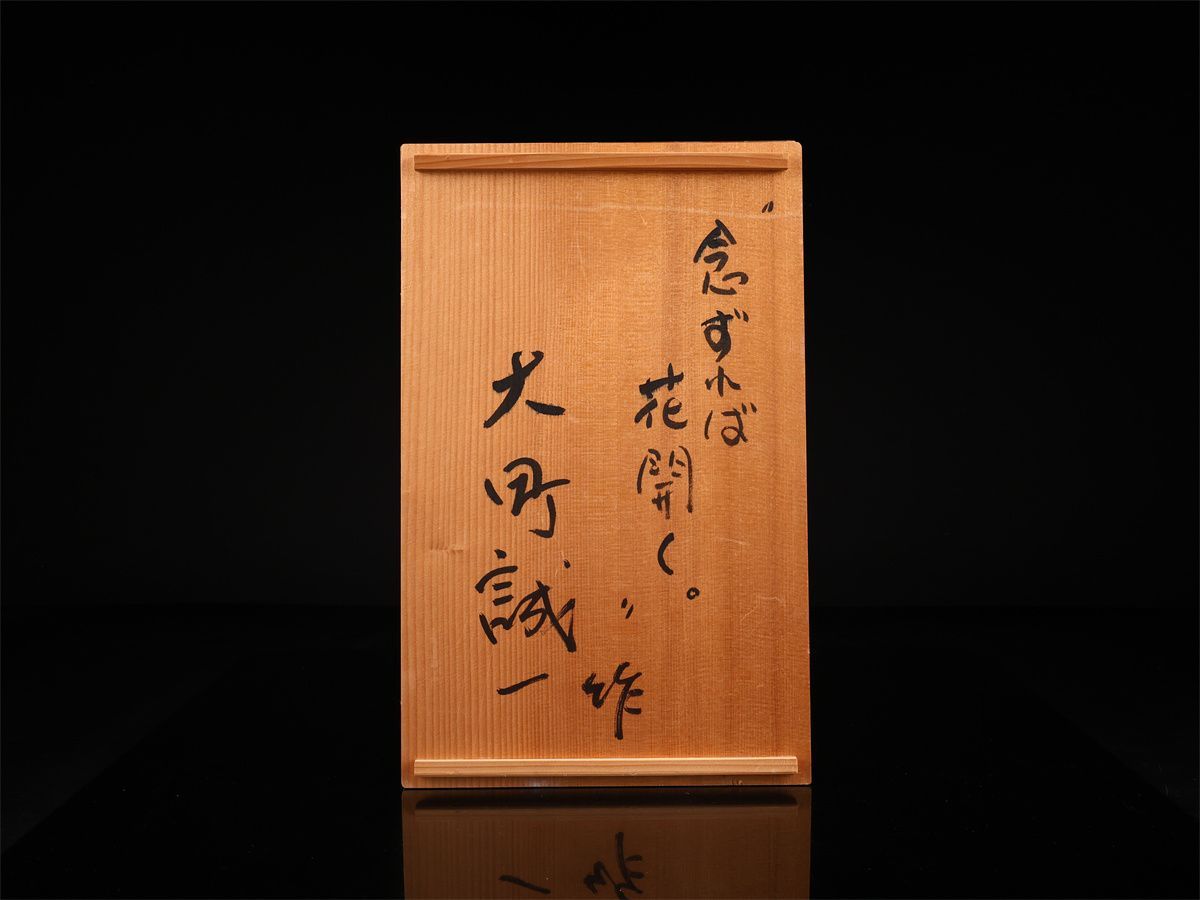 〃念ずれば
花開く。〃
作
大町誠一